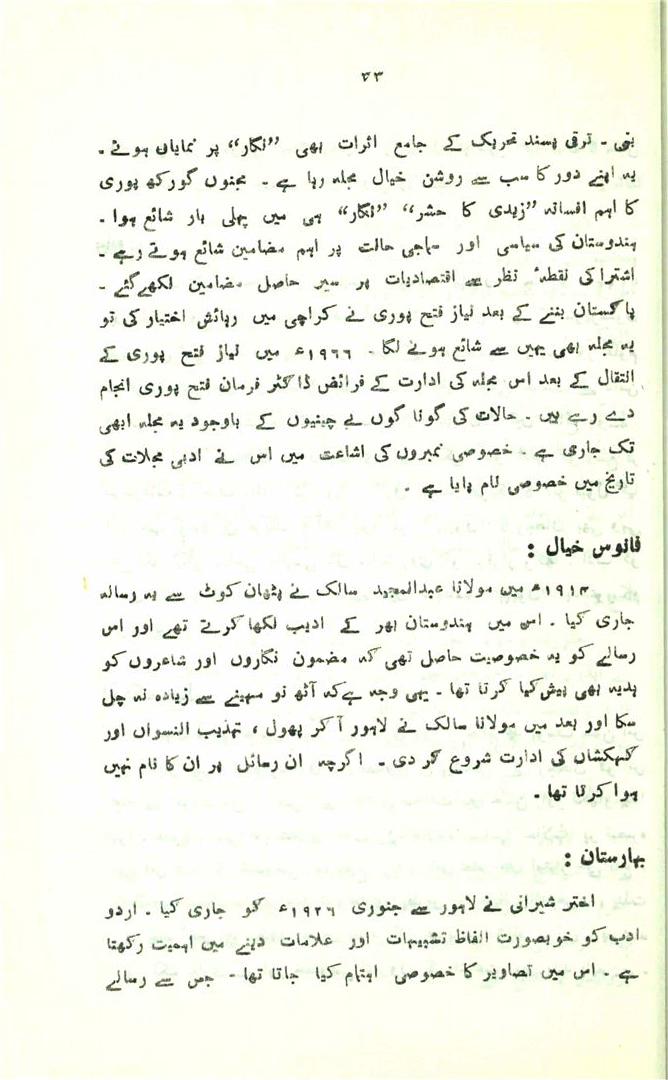 ۴۳
بنی ۔ ترقی پسند تحریک کے جامع اثرات بھی ”نگار“ پر نمایاں ہوئے ۔
یہ اپنے دور کا سب سے روشن خیال مجلہ رہا ہے ۔ مجنوں گورکھ پوری
کا اہم افسانہ ”زیدی کا حشر“ ”نگار“ ہی میں پہلی بار شائع ہوا ۔
ہندوستان کی سیاسی اور سماجی حالت پر اہم مضامین شائع ہوتے رہے ۔
اشتراکی نقطۂ نظر سے اقتصادیات پر سیر حاصل مضامین لکھے گئے ۔
پاکستان بننے کے بعد نیاز فتح پوری نے کراچی میں رہائش اختیار کی تو
یہ مجلہ بھی یہیں سے شائع ہونے لگا ۔ ۱۹۶۶ء میں نیاز فتح پوری کے
انتقال کے بعد اس مجلہ کی ادارت کے فرائض ڈاکٹر فرمان فتح پوری انجام
دے رہے ہیں ۔ حالات کی گونا گوں بے چینیوں کے باوجود یہ مجلہ ابھی
تک جاری ہے ۔ خصوصی نمبروں کی اشاعت میں اس نے ادبی مجلات کی
تاریخ میں خصوصی نام پایا ہے ۔
فانوس خیال :
۱۹۱۴ء میں مولانا عبدالمجید سالک نے پٹھان کوٹ سے یہ رسالہ
جاری کیا ۔ اس میں ہندوستان بھر کے ادیب لکھا کرتے تھے اور اس
رسالے کو یہ خصوصیت حاصل تھی کہ مضمون نگاروں اور شاعروں کو
ہدیہ بھی پیش کیا کرتا تھا ۔ یہی وجہ ہے کہ آٹھ نو مہینے سے زیادہ نہ چل
سکا اور بعد میں مولانا سالک نے لاہور آ کر پھول ، تہذیب النسواں اور
کہکشاں کی ادارت شروع کر دی ۔ اگرچہ ان رسائل پر ان کا نام نہیں
ہوا کرتا تھا ۔
بہارستان :
اختر شیرانی نے لاہور سے جنوری ۱۹۲۶ء کو جاری کیا ۔ اردو
ادب کو خوبصورت الفاظ تشبیہات اور علامات دینے میں اہمیت رکھتا
ہے ۔ اس میں تصاویر کا خصوصی اہتمام کیا جاتا تھا ۔ جس سے رسالے